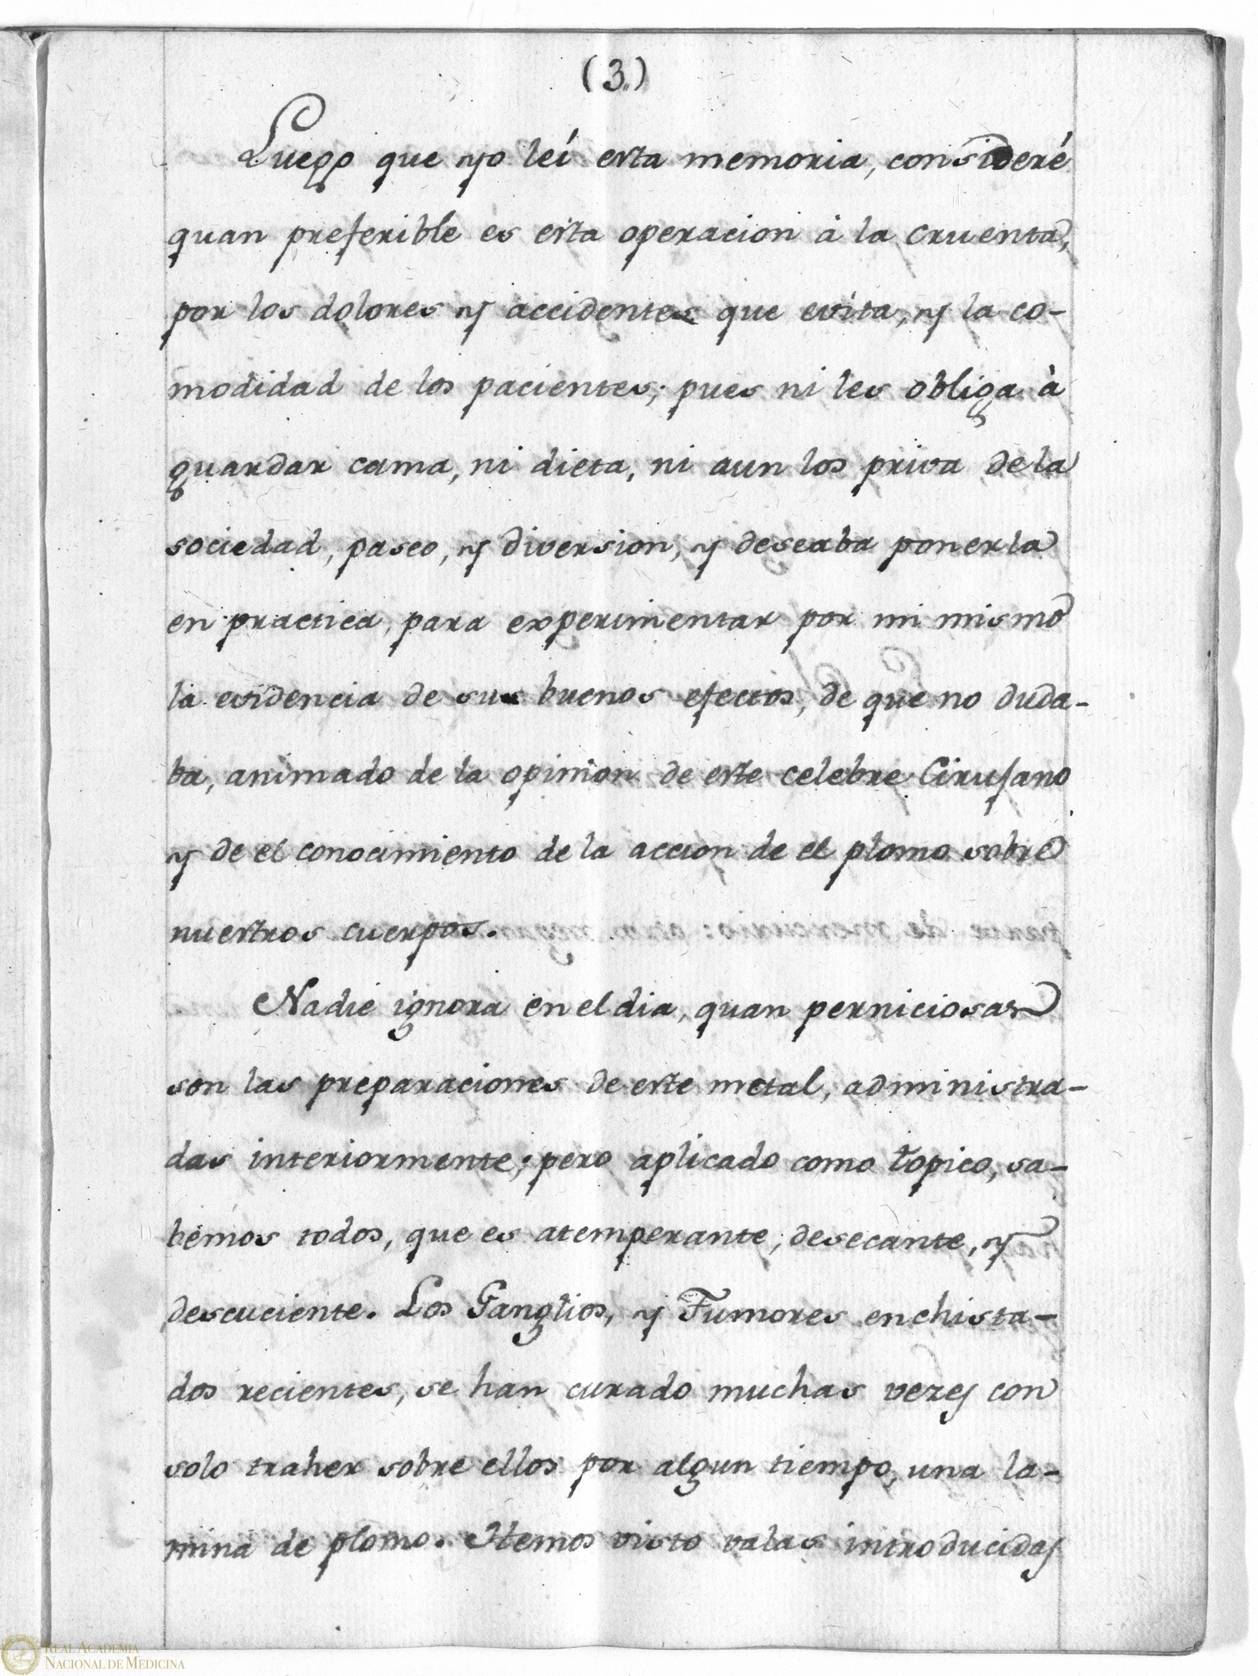 (3.)
Luego que yo leí esta memoria, consideré
quan preferible es esta operacion à la cruenta,
por los dolores y accidentes que evita, y la co-
modidad de los pacientes; pues ni les obliga à
guardar cama, ni dieta, ni aun los priva de la
sociedad, paseo, y diversion, y deseaba ponerla
en practica, para experimentar por mi mismo
la evidencia de sus buenos efectos, de que no duda-
ba, animado de la opinion de este celebre Cirujano
y de el conocimiento de la accion de el plomo sobre
nuestros cuerpos.
Nadie ignora en el dia, quan perniciosas
son las preparaciones de este metal, administra-
das interiormente; pero aplicado como topico, sa-
bemos todos, que es atemperante, desecante, y
descuciente. Los Ganglios, y Tumores enchista-
dos recientes, se han curado muchas vezes con
solo traher sobre ellos por algun tiempo, una la-
mina de plomo. Hemos visto valas introducidas
REAL ACADEMIA
NACIONAL DE MEDICINA